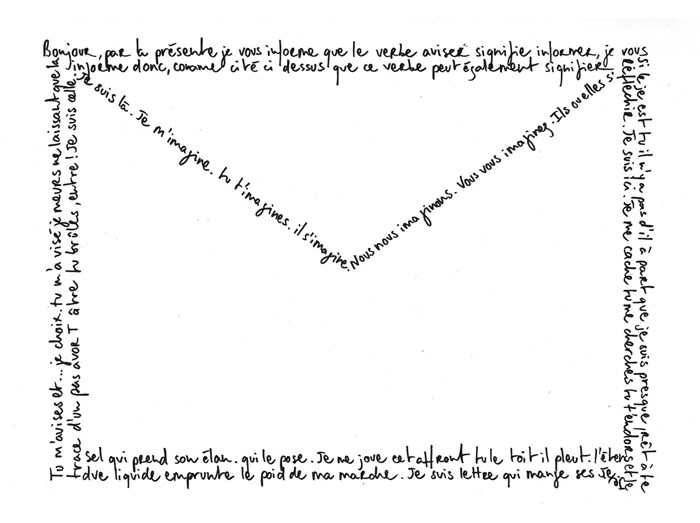 Bonjour, par la présente je vous informe que le verbe aviser signifie informer, je vous
informe donc, comme cité ci dessus que ce verbe peut également signifier
réfléchir. Je suis ici. Je me cache tu me cherches tu t'endors et le
si le je est tu il n'y a pas d'il à part que je suis presque prêt à te
sel qui prend son élan. qui le pose. Je me joue cet affront tu le toit il pleut. l'éten
due liquide emprunte le poid de ma marche. Je suis lettre qui mange ses
Tu m'avises et... je choir. tu m'a visé je meures ne laissant que la
trace d'un pas avor T âtre tu brûles, entre! Je suis celle.
Je suis là. Je m'imagine. tu t'imagines. il s'imagine.
Nous nous imaginons. Vous vous imaginez. Ils ou elles s'